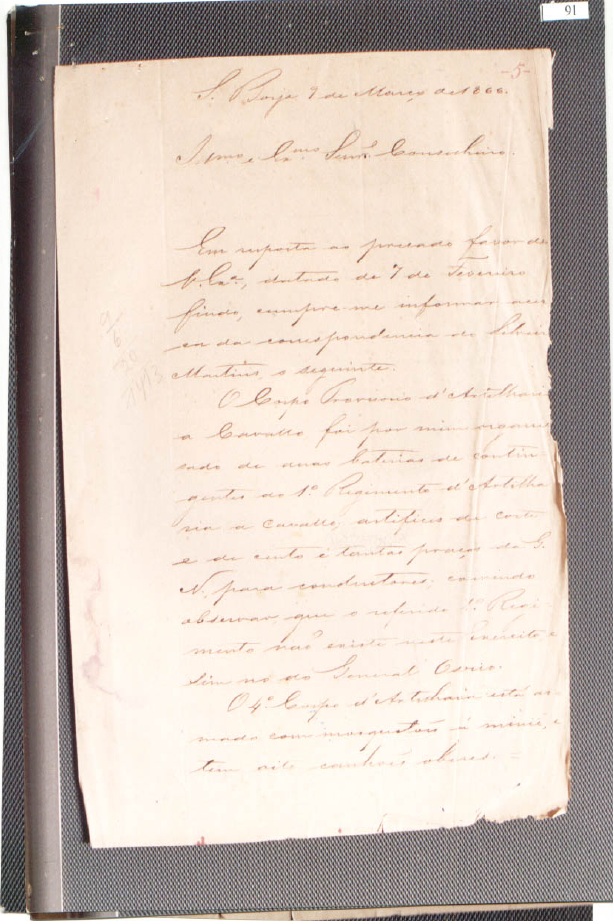 91
-5-
S. Borja 9 de Março de 1866.
Illmo. e Exmo. Senr. Conselheiro.
Em resposta ao presado favor de
V. Exa., datado de 7 de Fevereiro
findo, cumpre-me informar acer
ca da correspondencia do Silveira
Martins o seguinte.
O Corpo Provisorio d'Artelharia
a Cavallo foi por mim organi
sado de duas baterias de contin
gentes do 1º Regimento d'Artelha
ria a cavallo, artifices de corte
e de cento e tantas praças da G.
N. para conductores; cumprindo
observar que o referido 1º Regi
mento não existe neste Exercito e
sim no do General Osorio.
O 4º Corpo d'Artelharia está ar
mado com mosquetões á minié, e
tem oito canhões obuses. =